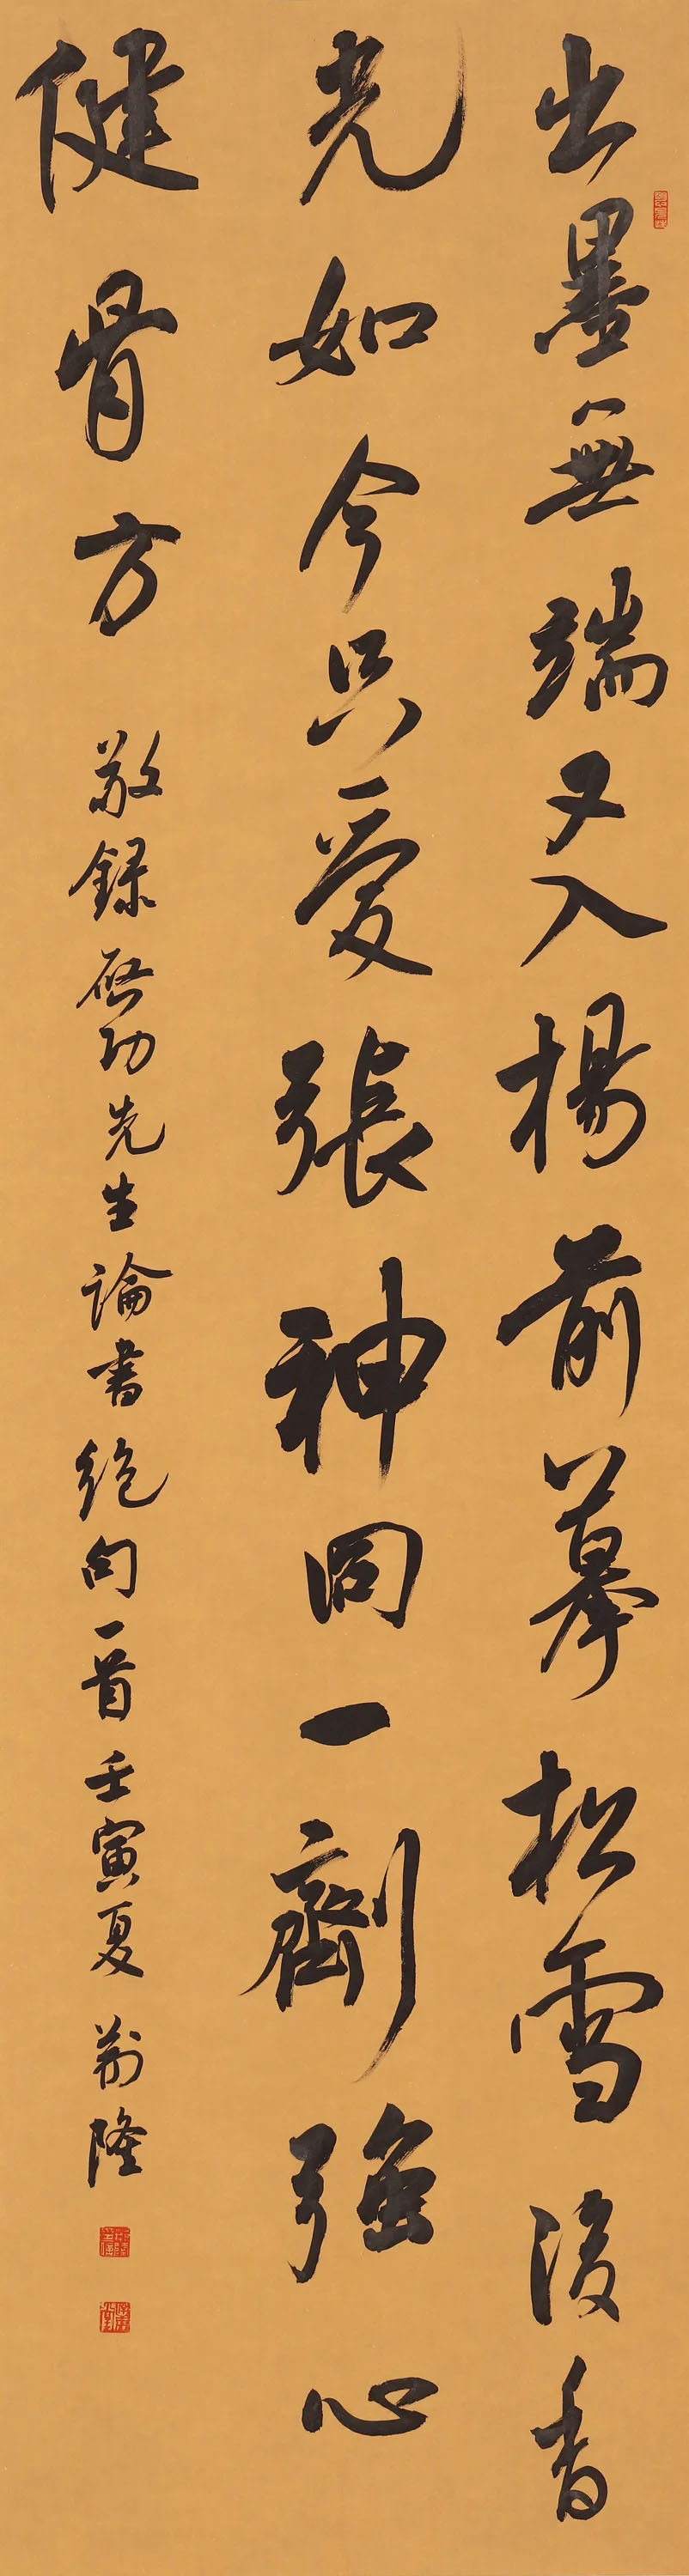 出墨無端又入楊前摹松雪後香
光如今只愛張神冏一劑強心
健骨方 敬録啟功先生論書絕句一首壬寅夏 荊隆